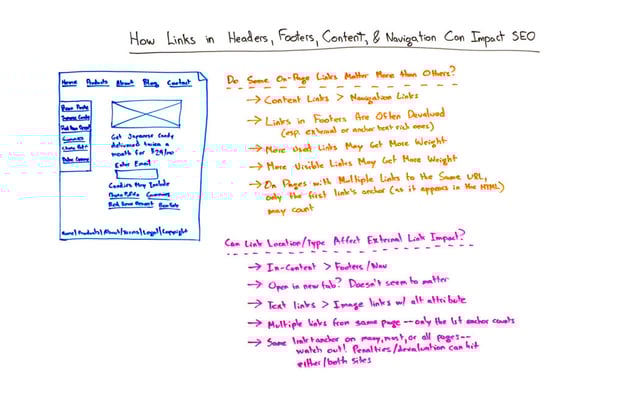 How Links in Headers, Footers, Content, & Navigation Can Impact SEO
Home Products About Blog Contact
Get Japanese Candy
delivered twice a
month for $29/mo
Enter Email
Candies May Include
Gummies
Home | Products | About | Terms | Legal | Copyright
Do Some On-Page Links Matter More than Others?
→ Content Links > Navigation Links
→ Links in Footers Are Often Devalued
(esp. external or anchor text rich ones)
→ More Used Links May Get More Weight
→ More Visible Links May Get More Weight
→ On Pages with Multiple Links to the Same URL,
only the first link's anchor (as it appears in the HTML)
may count
Can Link Location/Type Affect External Link Impact?
→ In-Content > Footers/Nav
→ Open in new tab? Doesn't seem to matter
→ Text links > Image links w/ alt attribute
→ Multiple links from same page -- only the 1st anchor counts
→ Same link+anchor on many, most, or all pages--
watch out! Penalties/devaluation can hit
either/both sites